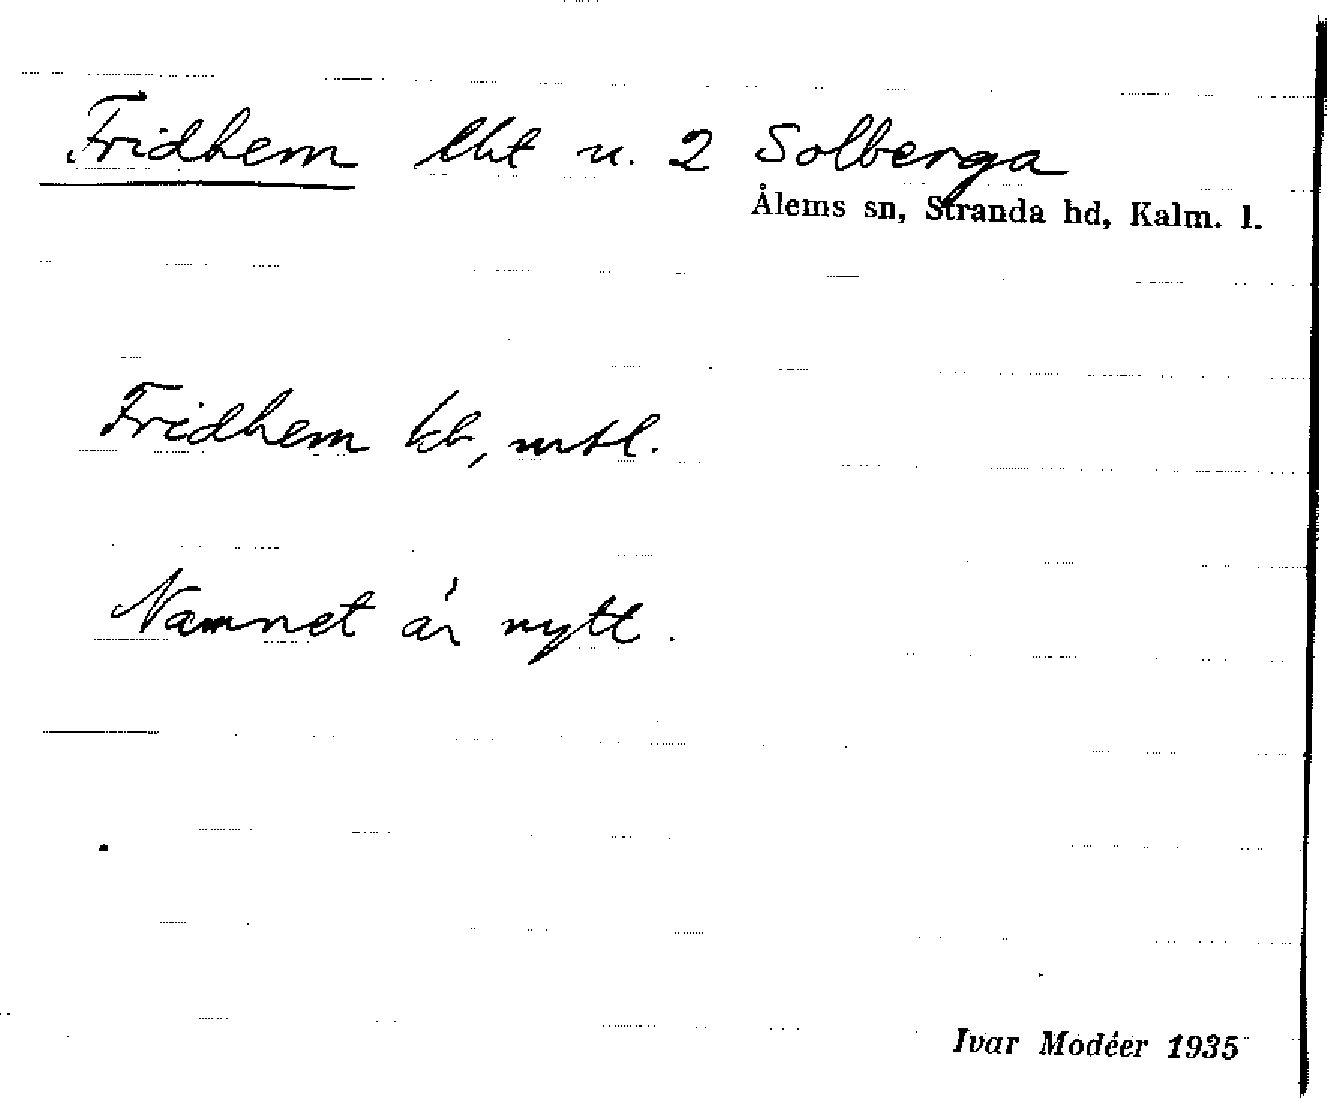 Fridhem lht u. 2 Solberga
Ålems sn, Stranda hd, Kalm. l.
Fridhem kb, mtl.
Namnet är nytt.
Ivar Modéer 1935